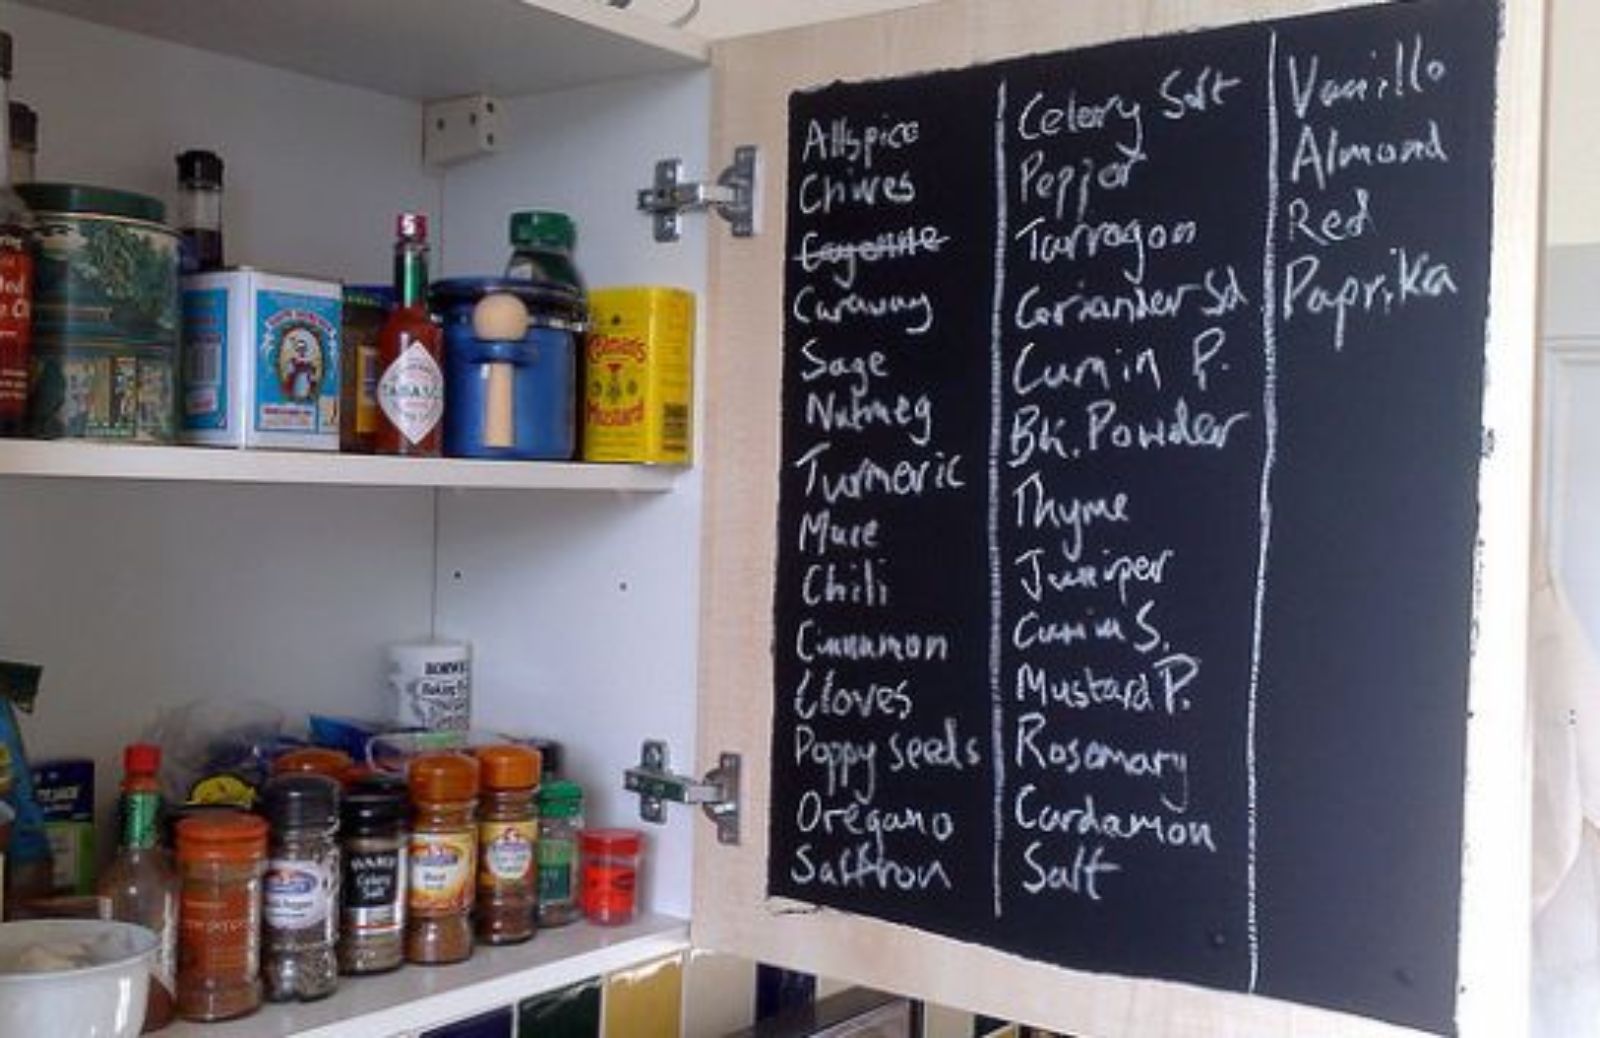 Allspice
Chives
Cayenne
Caraway
Sage
Nutmeg
Turmeric
Mace
Chili
Cinnamon
Cloves
Poppy seeds
Oregano
Saffron
Celery Salt
Pepper
Tarragon
Coriander Sd
Cumin P.
Bk. Powder
Thyme
Juniper
Cumin S.
Mustard P.
Rosemary
Cardamon
Salt
Vanilla
Almond
Red
Paprika
TABASCO
Colman's
Mustard
BORWI
Baking P
Celery
Salt